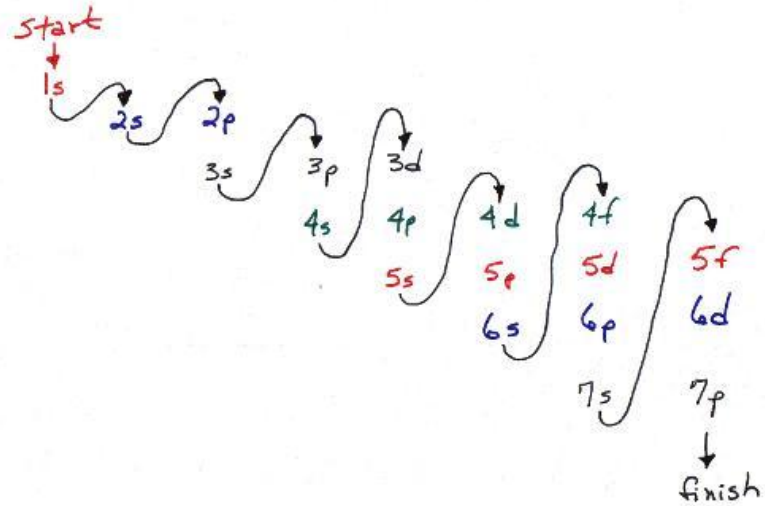 start
1s
2s 2p
3s 3p 3d
4s 4p 4d 4f
5s 5p 5d 5f
6s 6p 6d
7s 7p
finish